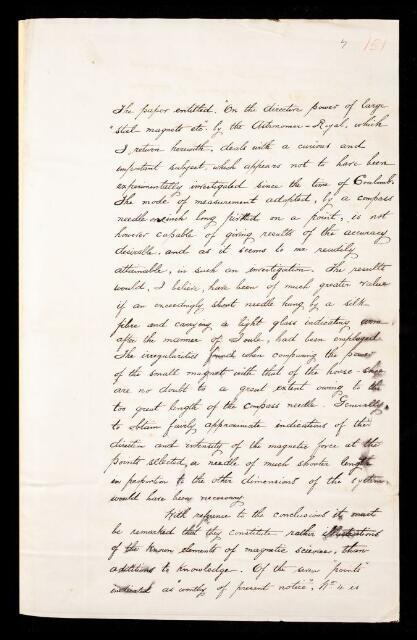 7 151
The paper entitled. "On the directive power of large
"steel magnets etc" by the Astronomer-Royal, which
I return herewith, deals with a curious and
important subject, which appears not to have been
experimentally investigated since the time of Coulomb.
The mode of measurement adopted, by a compass
needle one inch long pivoted on a point, is not
however capable of giving results of the accuracy
desirable, and as it seems to me readily
attainable, in such an investigation. The results
would, I believe, have been of much greater value
if an exceedingly short needle hung by a silk-
fibre and carrying a light glass indicating arm
after the manner of Joule, had been employed.
The irregularities found when comparing the power
of the small magnet with that of the horse-shoe
are no doubt to a great extent owing to the
too great length of the compass needle. Generally,
to obtain fairly approximate indications of the
direction and intensity of the magnetic force at the
points selected, a needle of much shorter length
in proportion to the other dimensions of the system
would have been necessary.
With reference to the conclusions it must
be remarked that they constitute rather illustrations
of the known elements of magnetic science, than
additions to knowledge. Of the seven "points"
indicated as "worthy of present notice", No 4 is